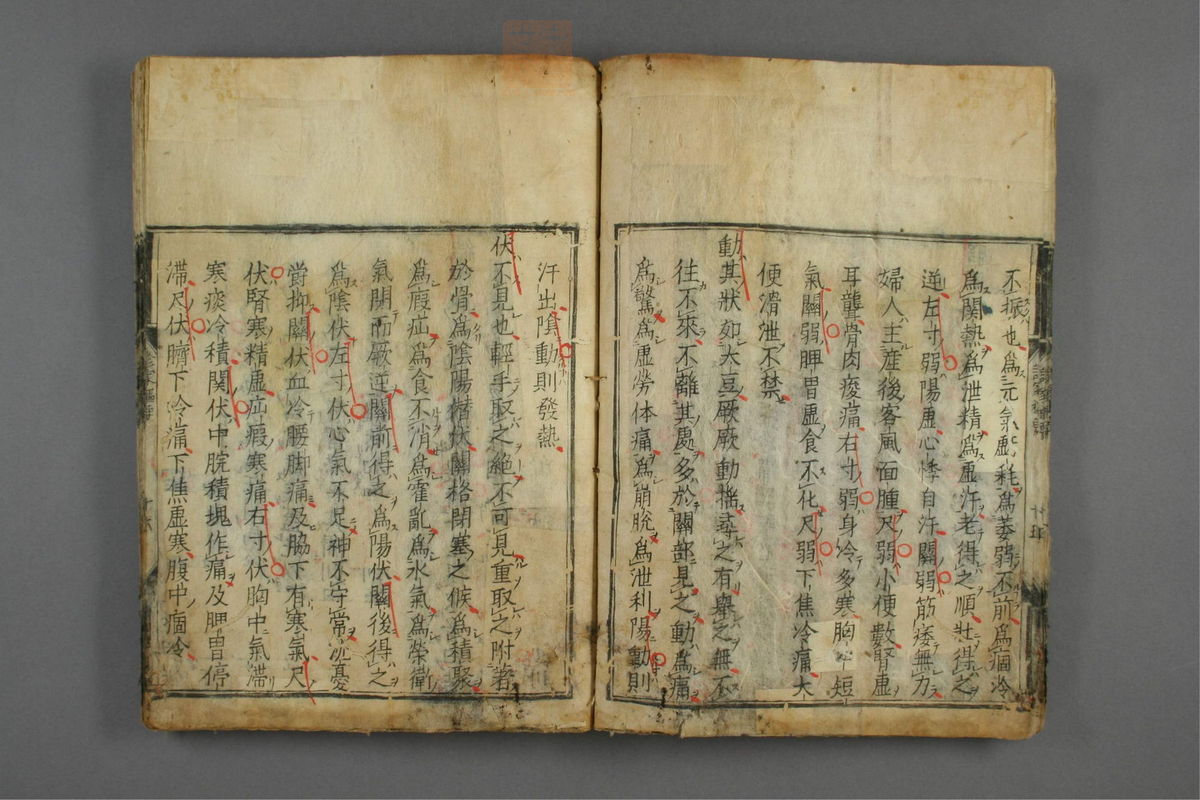 不振也爲元氣虚耗爲萎弱不前爲痼冷
爲関熱爲泄精爲虚汗老得之順壯得之
逆左寸弱陽虚心悸自汗關弱筋痿無力
婦人主産後客風面腫尺弱小便數腎虚
耳聾骨肉痠痛右寸弱身冷多寒胸中短
氣關弱脾胃虚食不化尺弱下焦冷痛大
便滑泄不禁
動其狀如大豆厥厥動揺尋之有舉之無不
徃不來不離其處多於關部見之動為痛
爲驚爲虚勞体痛爲崩脫爲泄利陽動則
汗出陰動則發熱
伏不見也輕手取之絶不可見重取之附着
於骨爲陰陽潜伏關格閉塞之候爲積聚
爲瘕疝爲食不消爲霍亂爲水氣爲榮衛
氣閉而厥逆關前得之爲陽伏關後得之
爲陰伏左寸伏心氣不足神不守常沈憂
欝抑關伏血冷腰脚痛及脇下有寒氣尺
伏腎寒精虚疝瘕寒痛右寸伏胸中氣滞
寒痰冷積関伏中脘積塊作痛及脾胃停
滞尺伏臍下冷痛下焦虚寒腹中痼冷